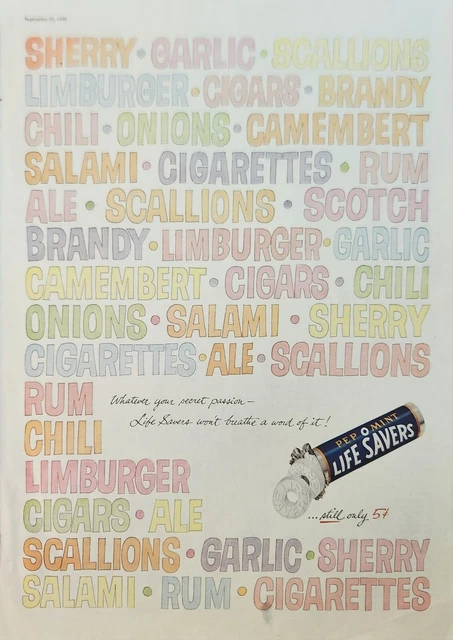 SHERRY • GARLIC • SCALLIONS
LIMBURGER • CIGARS • BRANDY
CHILI • ONIONS • CAMEMBERT
SALAMI • CIGARETTES • RUM
ALE • SCALLIONS • SCOTCH
BRANDY • LIMBURGER • GARLIC
CAMEMBERT • CIGARS • CHILI
ONIONS • SALAMI • SHERRY
CIGARETTES • ALE • SCALLIONS
RUM
Whatever your secret passion—
Life Savers won't breathe a word of it!
CHILI
PEP O MINT
LIFE SAVERS
LIMBURGER
CIGARS • ALE
...still only 5¢
SCALLIONS • GARLIC • SHERRY
SALAMI • RUM • CIGARETTES